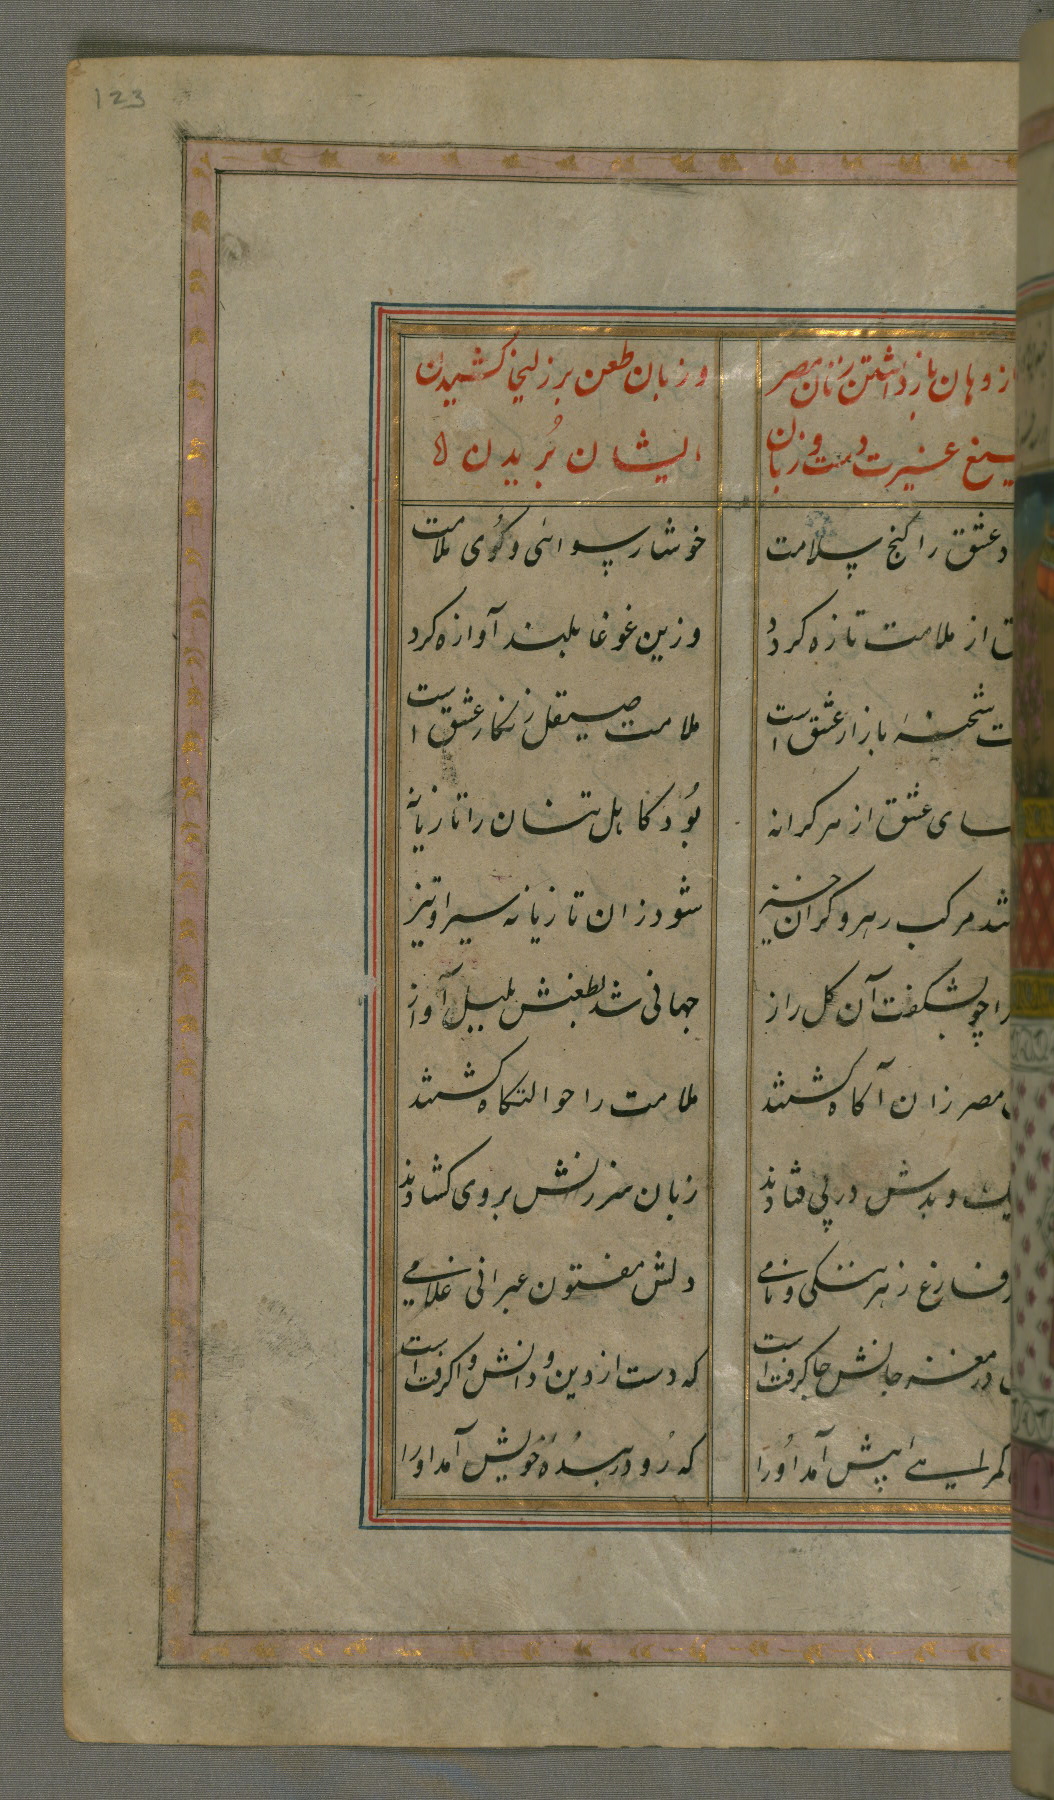 123
از وهان بازداشتن زنان مصر و زبان طعن بر زلیخا کشیدن
غیرت دست و زبان ایشان بُریدن
عشق را کنج سلامت خوشا رسوائی و کُوی ملامت
از ملامت تازه کردد وزین غوغا بلند آوازه کردد
شحنهٔ بازار عشق است ملامت صیقل زنکار عشق است
عشق از هر کرانه بُود کاهل تنان را تازیانه
مرکب رهرو کران خیز شود زان تازیانه سیر او تیز
را چو بشکفت آن کل راز جهانی شد بطعنش بلبل آواز
مصر زان آکاه کشتند ملامت را حوالتکاه کشتند
و بدش در پی فتادند زبان سرزنش بر وی کشادند
فارغ ز هر ننکی و نامی دلش مفتون عبرانی غلامی
در مغز جانش جا کرفت است که دست از دین و دانش وا کرفت است
پیش آمد اُو را که رُو در بندهٔ خویش آمد او را